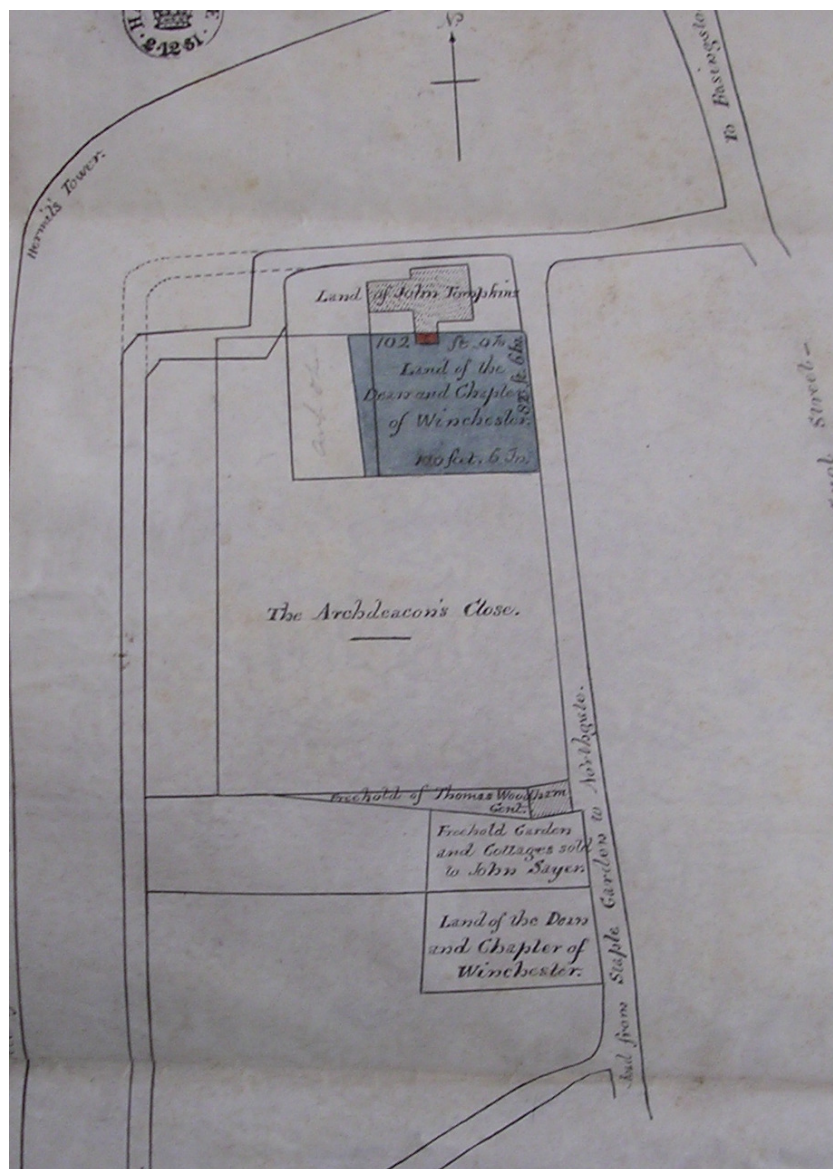 2·12·61
N.
To Basingsto
Hermit's Tower.
Land of John Tompkins
102 ft. 9 In
Land of the
Dean and Chapter
of Winchester.
82 ft. 6 In.
feet. 6 In.
The Archdeacon's Close.
Freehold of Thomas Woodham
Gent.
Freehold Garden
and Cottages sold
to John Sayer.
Land of the Dean
and Chapter of
Winchester.
from Staple Garden to Northgate.
Street